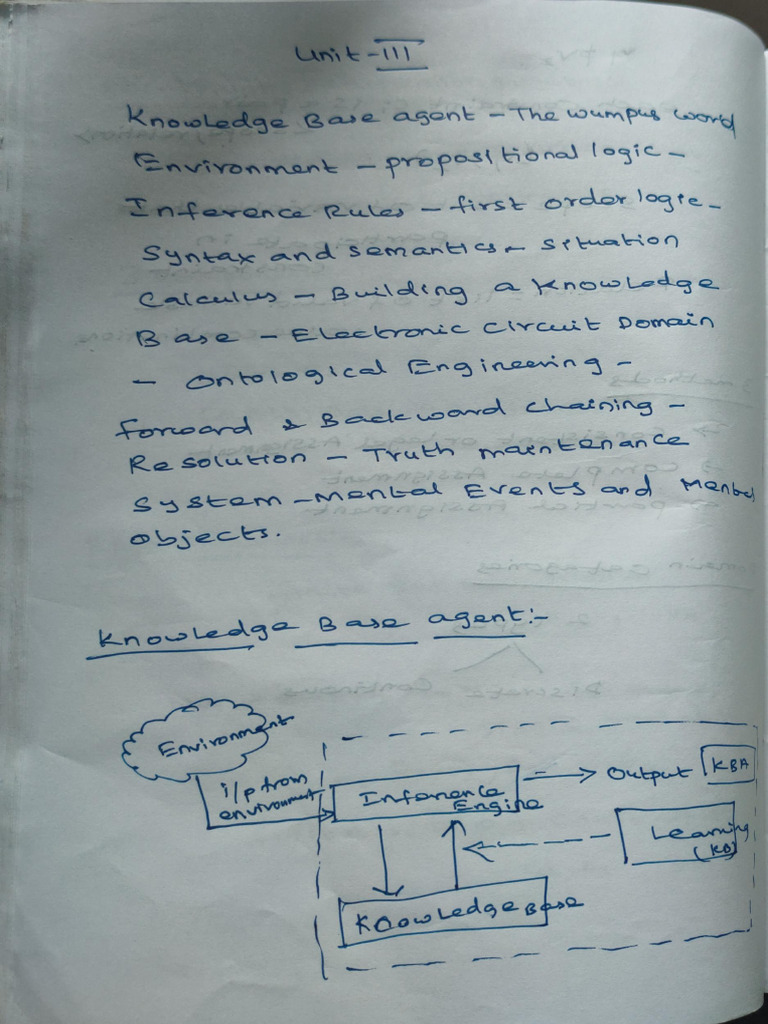 Unit-III
Knowledge Base agent - The wumpus world
Environment - propositional logic -
Inference Rules - first order logic -
Syntax and semantics - Situation
Calculus - Building a Knowledge
Base - Electronic Circuit Domain
- Ontological Engineering -
forward & Backward chaining -
Resolution - Truth maintenance
System - Mental Events and Mental
objects.
Knowledge Base agent:-
Environment
i/p from
environment
Inference
Engine
Output
KBA
Learning
(KB)
Knowledge Base